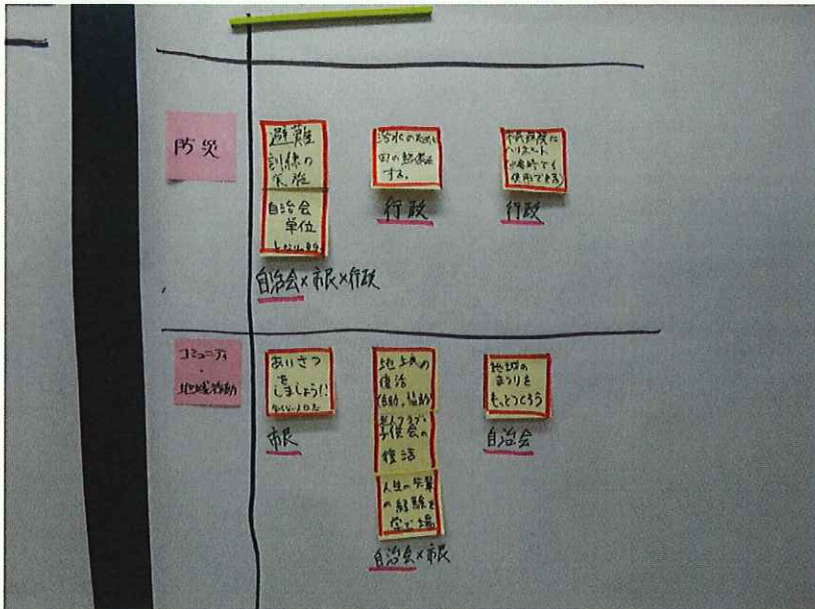 防災
避難
訓練の
実施
自治会
単位
自治会×市民×行政
治水のため
田の整備を
する。
行政
使用できる)
行政
コミュニティ
・
地域活動
あいさつ
を
しましょう!!
市民
の
復活
子供会の
復活
人生の先輩
の経験を
学ぶ場
自治会×市民
地域の
まつりを
もっとつくろう
自治会